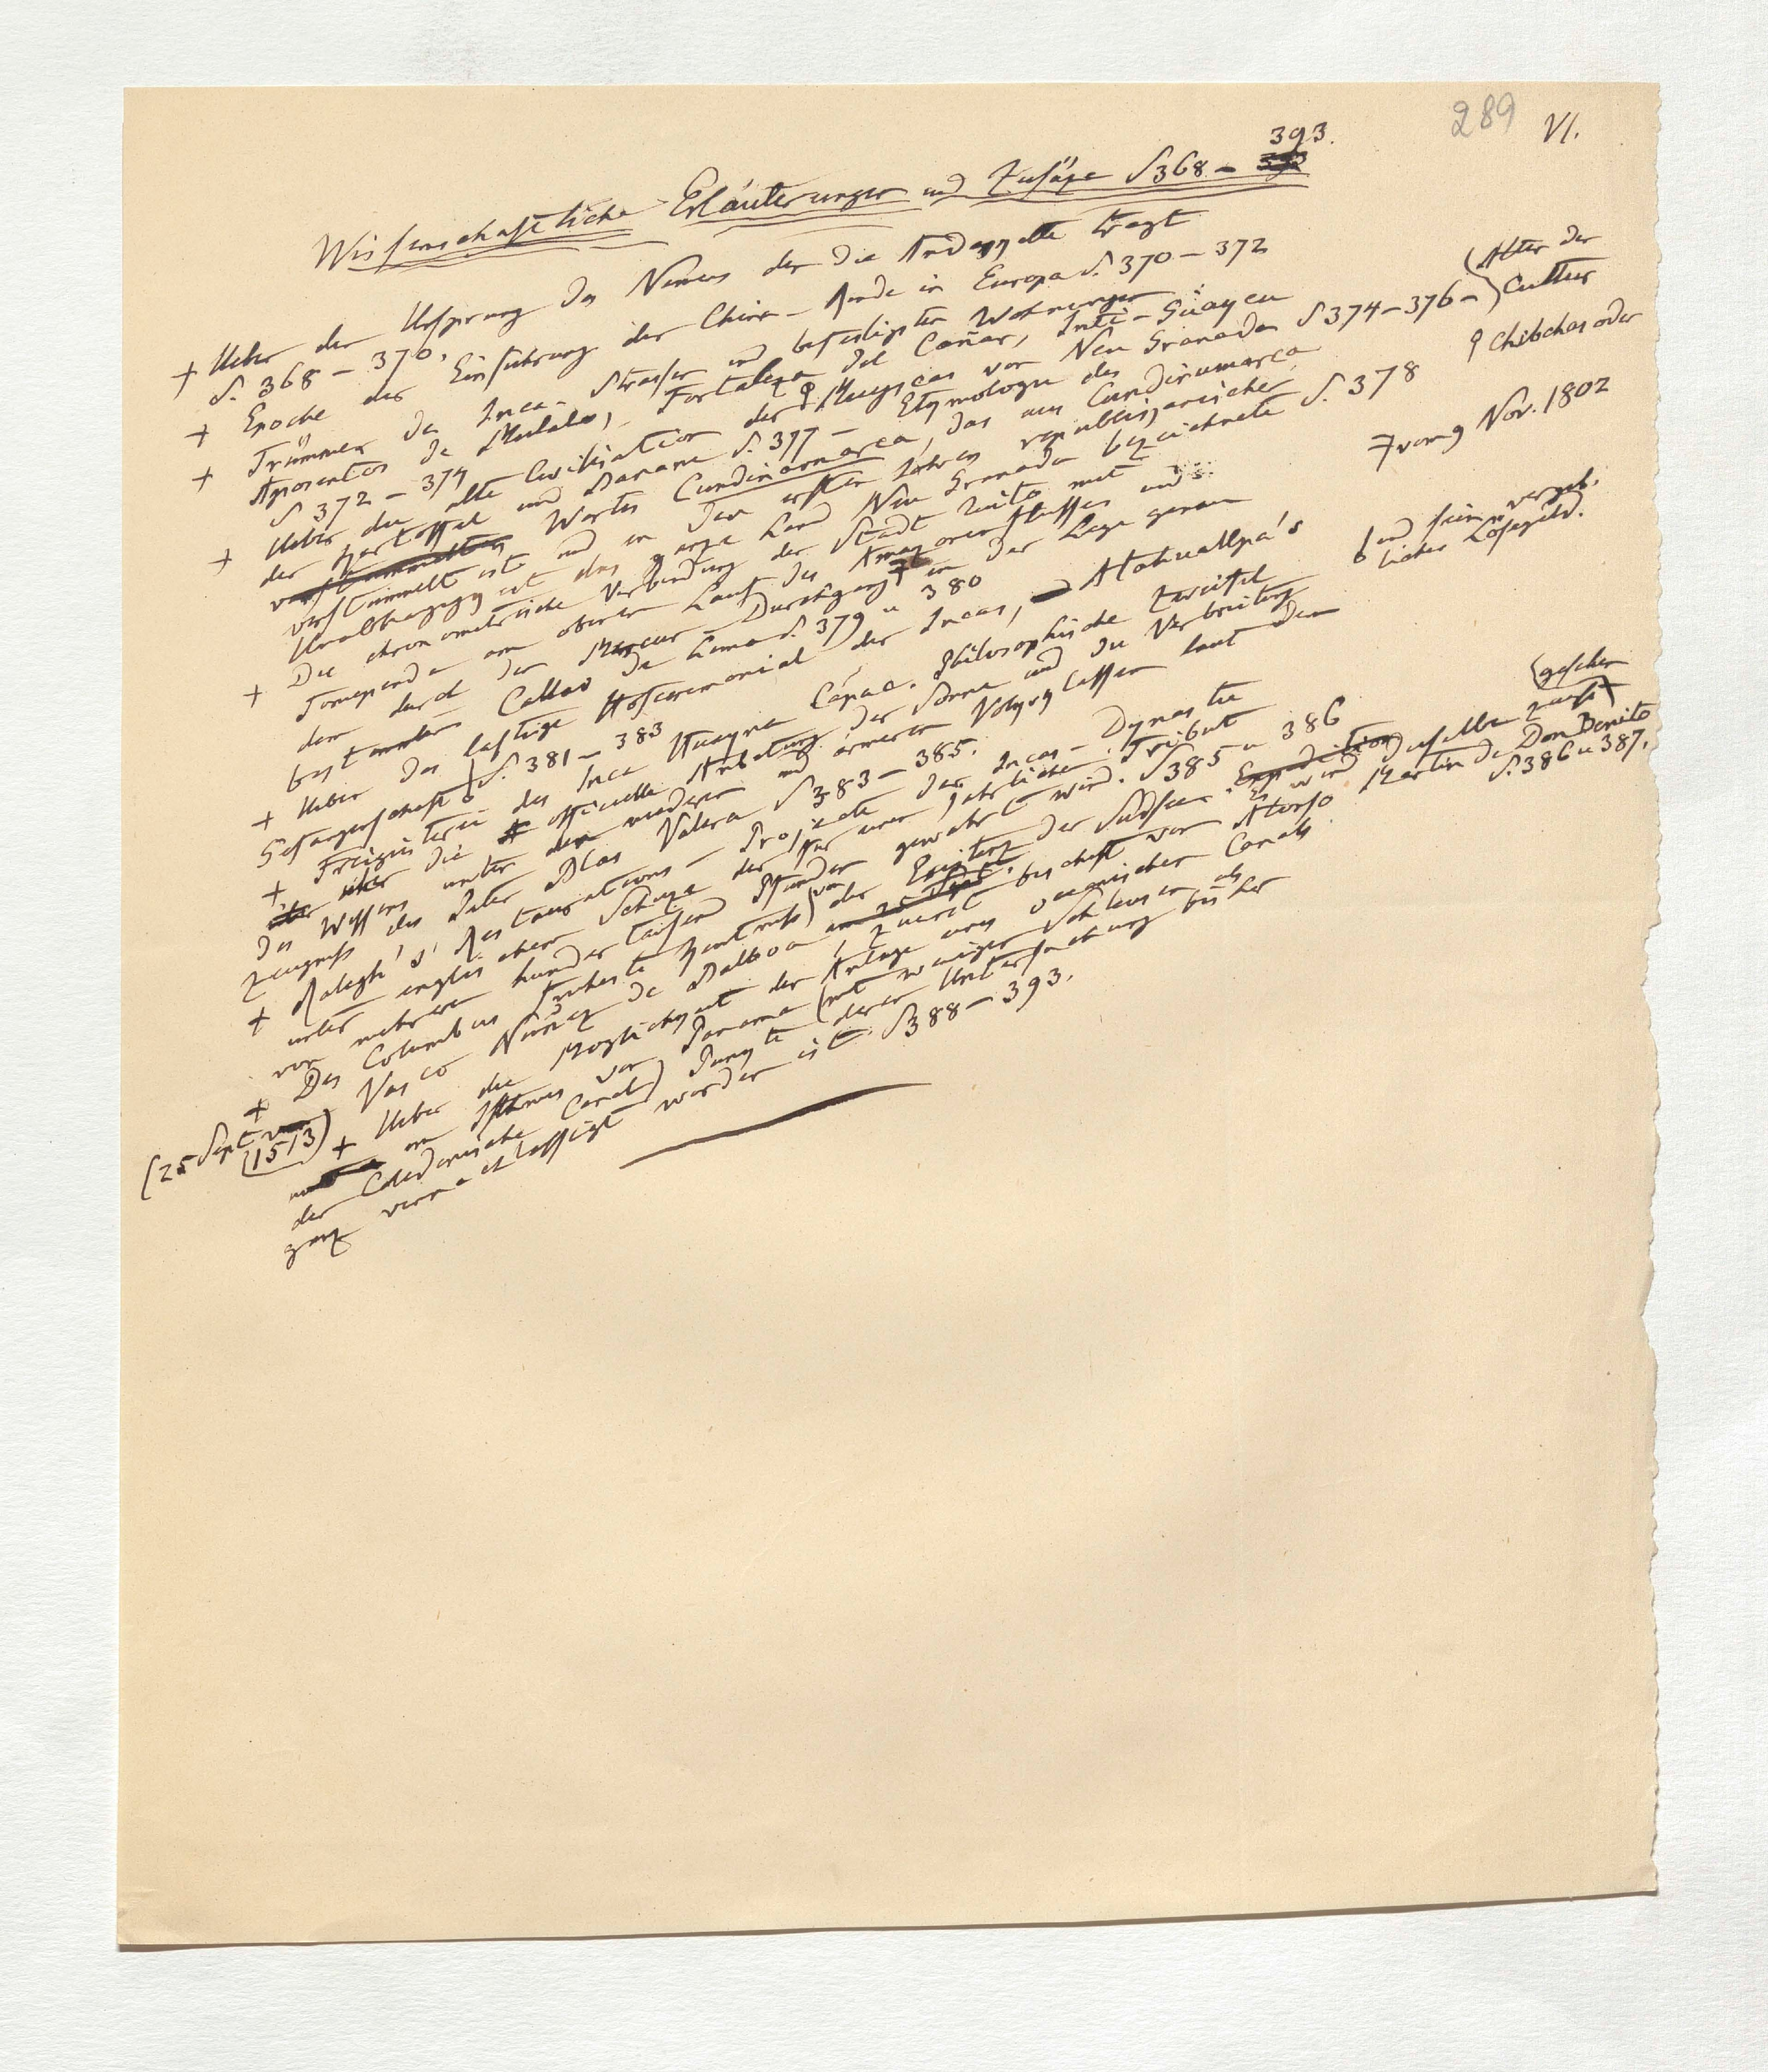 289 VI.
Wissenschaftliche Erläuterungen und Zusäze S 368 – 393.
+ Ueber den Ursprung des Namens den die Andeskette tragt
S. 368 – 370.
+ Epoche der Einfuhrung der China-Rinde in Europa S. 370 – 372
+ Trümmer der Inca-Strassen und befestigten Wohnungen:
Aposentos de Mulalo, Fortaleza del Cañar, Inti-Guaycu
S 372 – 374
+ Ueber die alte Civilisation der Muyscas von Neu Granada S 374 – 376 – Alter der Cultur
ϙ Chibchas oder
der Kartoffel und Banane S. 377 – Etymologie des
verstümmelten Wortes Cundinamarca, das aus Cundirumarca
verstümmelt ist und in den ersten Jahren republikanischer
Unabhangigkeit das ganze Land Neu Granada bezeichnete S. 378
+ Die chronometrische Verbindung der Stadt Quito mit
Tomependa am oberen Lauf des Amazonenflusses und
dem durch den Merkur-Durchgang in der Lage genau
vom 9 Nov. 1802
bestimmten Callao de Lima S. 379 u 380
+ Ueber das lastige Hofceremoniel der Incas, Atahuallpa's
Gefangenschaft S. 381 – 383
und sein vergeb.
liches Lösegeld.
+ Freigeisterei des Inca Huayna Capac. Philosophische Zweifel
über die officielle Anbetung der Sonne und die Verbreitung
des Wissens unter den niederen und ärmeren Volksclassen laut dem
Zeugniss des Pater Blas Valera S 383 – 385.
+ Ralegh's Restaurations-Projecte der Incas-Dynastie
unter englischem Schuze der fur einen jahrlichen Tribut
von mehreren hundert tausend Pfunden gewahrt wird. S 385 u 386
+ Des Columbus fruheste Kentniss von der Existenz der Südsee. Expedition Es wird dieselbe zuerst gesehen
Vasco Nuñez de Balboa am 25 Sept.
(25 Sept 1513)
zuerst beschifft von Alonso Martin de Don Benito
S. 386 u 387.
+ Ueber die Moglichkeit der Anlage eines oceanischen Canals
am Isthmus von Panama (mit weniger Schleusen als
der Caledonische Canal) Punkte deren Untersuchung bisher
ganz vernachlassigt worden ist. S 388 – 393.